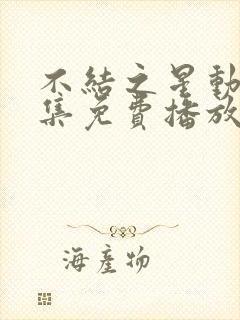 不結之星動
集免費播放
海產物